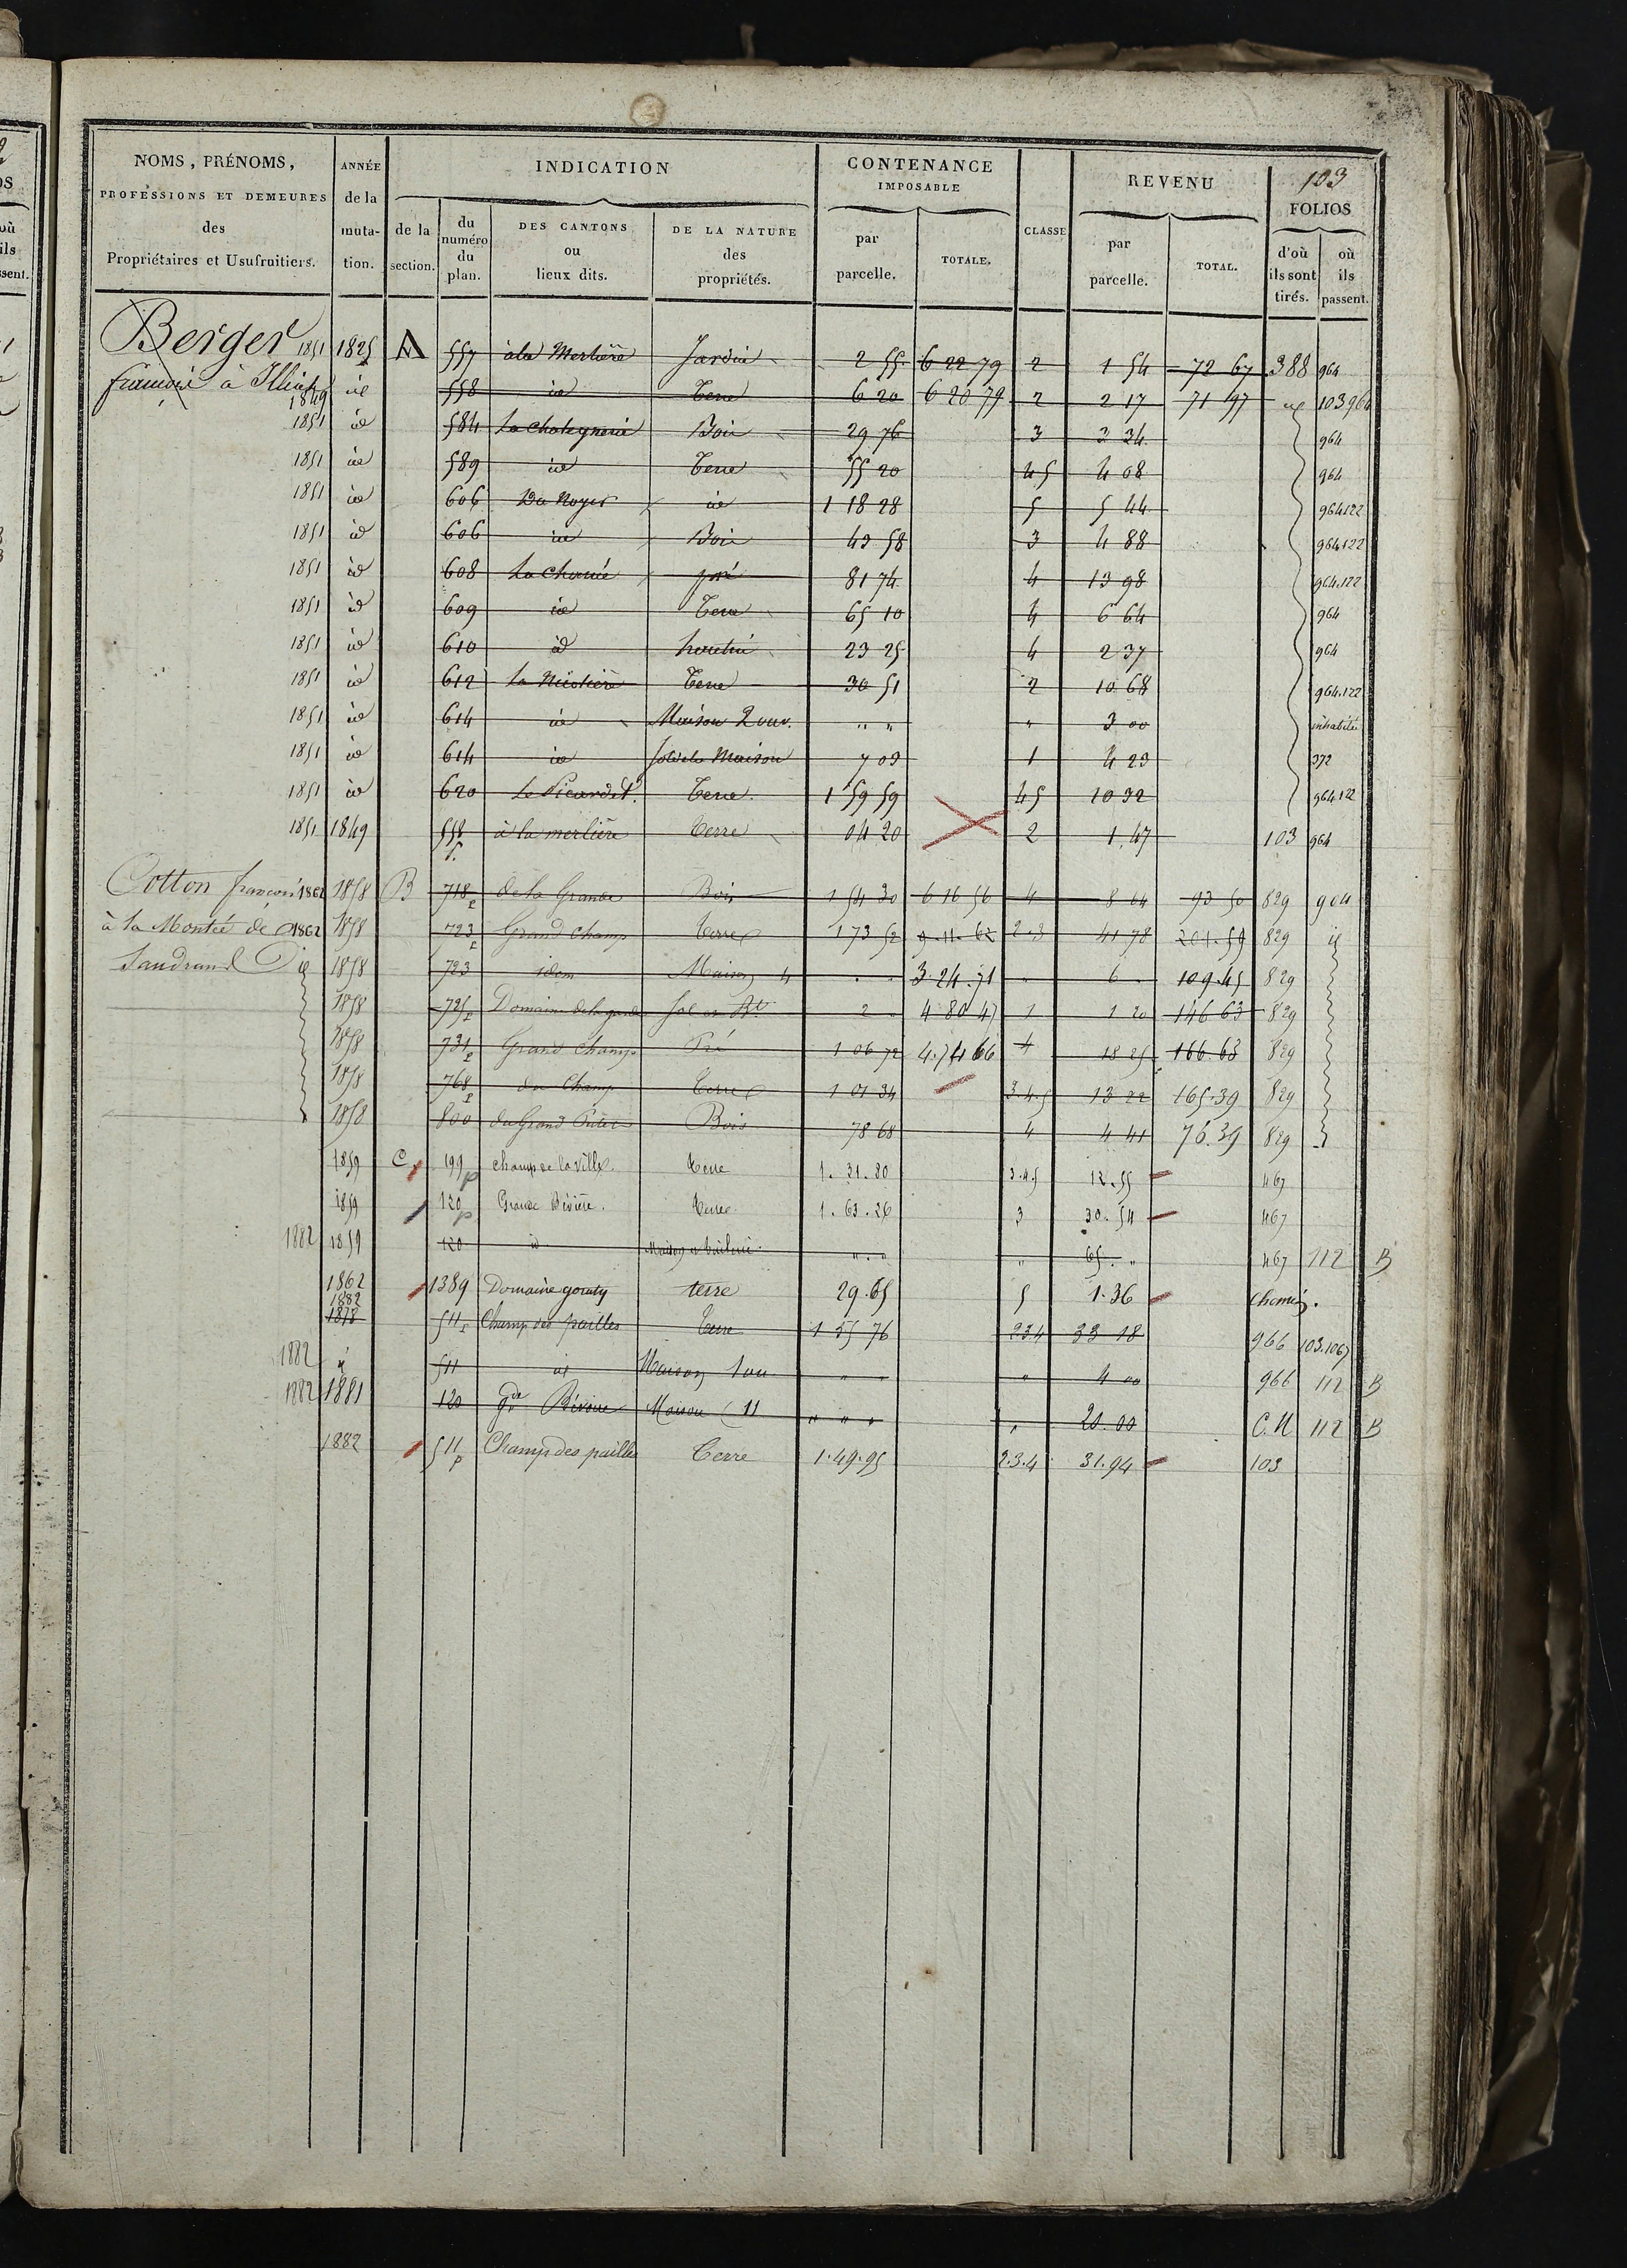 103
NOMS, PRÉNOMS, PROFESSIONS ET DEMEURES des Propriétaires et Usufruitiers.
ANNÉE de la muta- tion.
INDICATION
de la section.
du numéro du plan.
DES CANTONS ou lieux dits.
DE LA NATURE des propriétés.
CONTENANCE IMPOSABLE
par parcelle.
TOTALE.
CLASSE
REVENU
par parcelle.
TOTAL.
FOLIOS
d'où ils sont tirés.
où ils passent.
Berger 1851 1825 A 557 à la Merlière Jardin 2 55 6 22 79 2 1 54 72 67 388 964
françois à 1849 id 558 id Terre 6 20 6 20 79 2 2 17 71 97 id 103 964
1851 id 584 Bois 29 76 3 3 34 964
1851 id 589 id Terre 55 20 4 5 4 08 964
1851 id 606 Du Noyer id 1 18 28 5 5 44 964 122
1851 id 606 id Bois 43 58 3 4 88 964 122
1851 id 608 pré 81 74 4 13 98 964.122
1851 id 609 id Terre 65 10 4 6 64 964
1851 id 610 id 23 25 4 2 37 964
1851 id 612 Terre 30 51 2 10 68 964.122
1851 id 614 id Maison 2 ouv. " " " 3 00 inhabitée
1851 id 614 id Sol de la Maison 7 03 1 4 23 372
1851 id 620 Le Picardet. Terre. 1 59 59 4 5 10 32 964.122
1851 1849 558 p. à la merlière Terre 04 20 2 1.47 103 964
Cotton françois 1862 1858 B 718 p de la Grande Bois 1 54 30 6 16 56 4 8 64 93 50 829 904
à la Montée de 1862 1858 723 p Grand Champ Terre 1 73 52 9.11.62 2.3 41 78 201.59 829 id
id 1858 723 idem Maison 4 3.24.71 6 109.45 829
1858 725 p Sol et Bt 2 4 80 47 1 1 20 146 63 829
1858 731 p Grand Champ Pré 1 06 72 4.74 66 4 18 25 166.63 829
1858 768 p du Champ Terre 1 01 34 3.4.5 13 22 165.39 829
1858 800 du Grand Bois 78 68 4 4 41 76.39 829
1859 C 199 p champ de la ville Terre 1.31.80 3.4.5 12.55 467
1859 120 p Grande Terre 1.63.26 3 30.54 467
1882 1859 120 id " " " 65. " 467 112 B
1862 1389 Domaine terre 29.65 5 1.36 chemin.
1882 1878 511 p Champ des pailles Terre 1 55 76 2 3 4 33 18 966 103.1067
1882 id 511 id Maison 1 ou " " " 4 00 966 112 B
1882 1881 120 Gde Maison (11 " " " " 20.00 C.N 112 B
1882 511 p Champ des pailles Terre 1.49.95 2.3.4 31.94 103